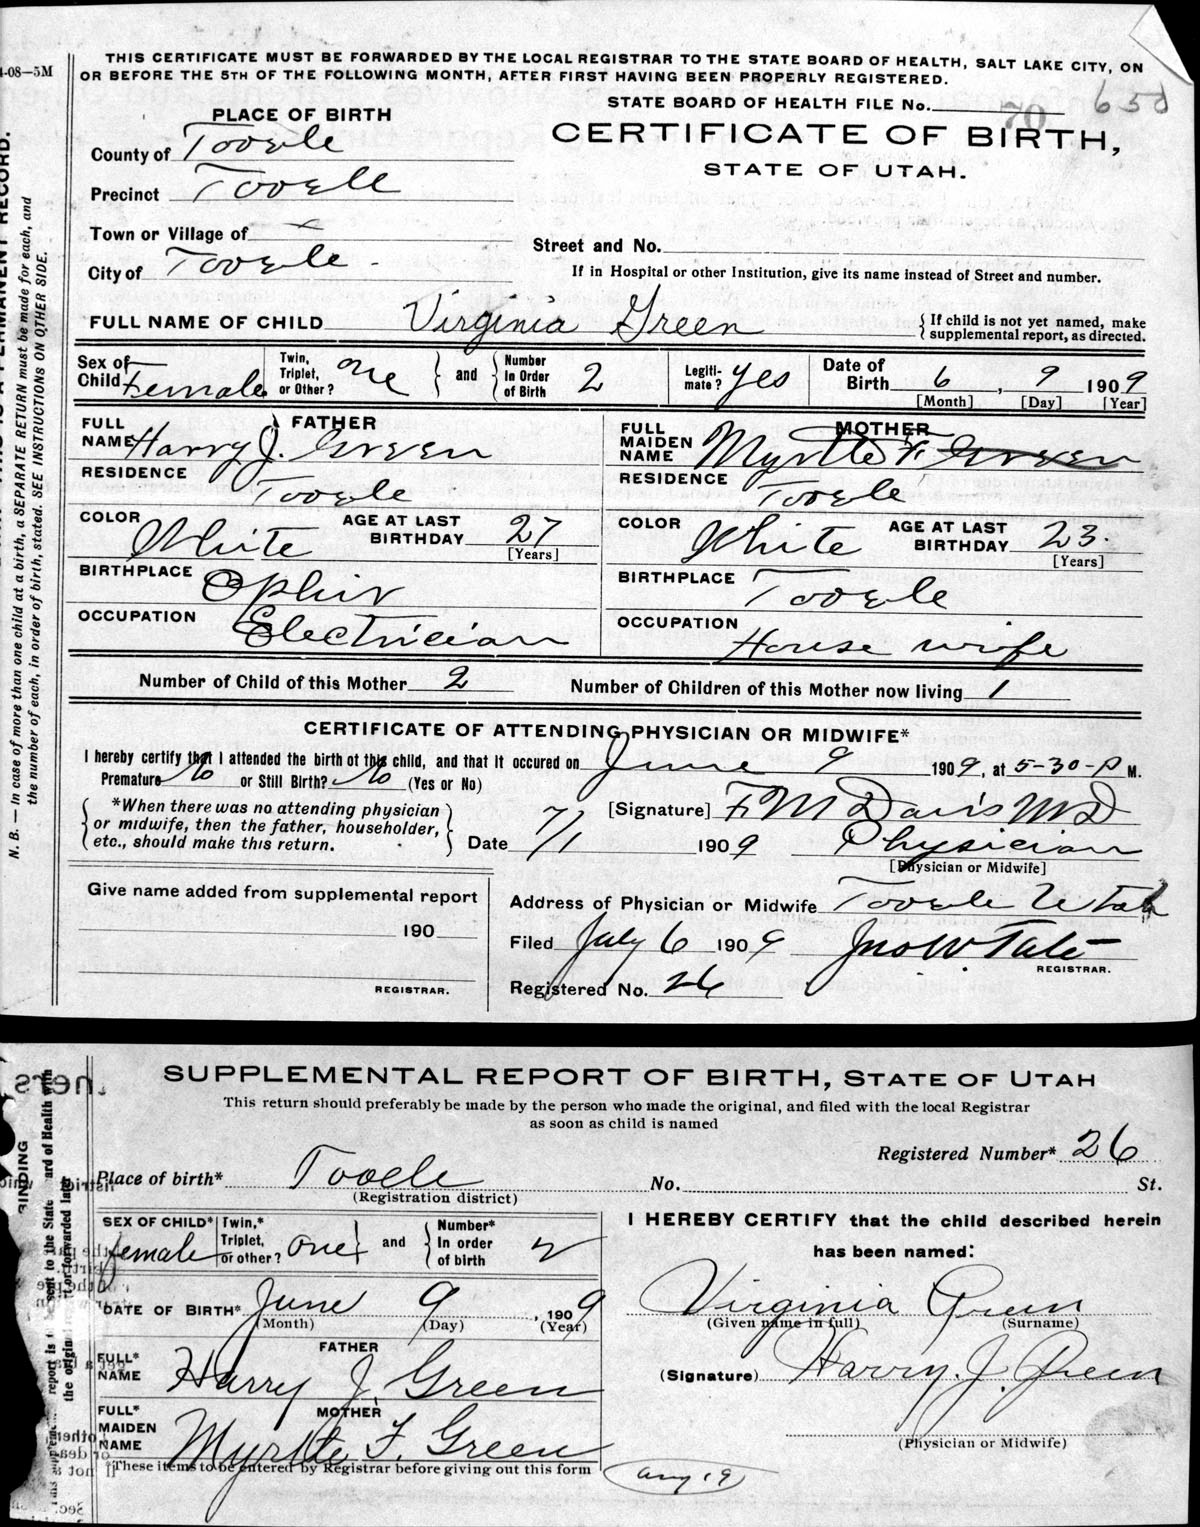 THIS CERTIFICATE MUST BE FORWARDED BY THE LOCAL REGISTRAR TO THE STATE BOARD OF HEALTH, SALT LAKE CITY, ON
OR BEFORE THE 5TH OF THE FOLLOWING MONTH, AFTER FIRST HAVING BEEN PROPERLY REGISTERED.
-08—5M
STATE BOARD OF HEALTH FILE No. 70
PLACE OF BIRTH
CERTIFICATE OF BIRTH,
STATE OF UTAH.
County of Tooele
Precinct Tooele
Town or Village of
City of Tooele
Street and No.
If in Hospital or other Institution, give its name instead of Street and number.
FULL NAME OF CHILD Virginia Green
{ If child is not yet named, make
supplemental report, as directed.
Sex of Child Female
Twin, Triplet, or Other? one } and { Number In Order of Birth 2
Legiti-mate? yes
Date of Birth 6, 9 1909
[Month] [Day] [Year]
FATHER
FULL NAME Harry J. Green
RESIDENCE Tooele
COLOR White AGE AT LAST BIRTHDAY 27 [Years]
BIRTHPLACE Ophir
OCCUPATION Electrician
MOTHER
FULL MAIDEN NAME Myrtle F. Green
RESIDENCE Tooele
COLOR White AGE AT LAST BIRTHDAY 23. [Years]
BIRTHPLACE Tooele
OCCUPATION House wife
Number of Child of this Mother 2 Number of Children of this Mother now living 1
CERTIFICATE OF ATTENDING PHYSICIAN OR MIDWIFE*
I hereby certify that I attended the birth of this child, and that it occured on June 9 1909, at 5-30-P M.
Premature No or Still Birth? No (Yes or No)
{ *When there was no attending physician
or midwife, then the father, householder,
etc., should make this return. }
[Signature] F. M Davis M D
Date 7/1 1909 Physician
[Physician or Midwife]
Give name added from supplemental report
190
REGISTRAR.
Address of Physician or Midwife Tooele Utah
Filed July 6 1909 Jno W Tate
REGISTRAR.
Registered No. 26
N. B. — In case of more than one child at a birth, a SEPARATE RETURN must be made for each, and
the number of each, in order of birth, stated. SEE INSTRUCTIONS ON OTHER SIDE.
SUPPLEMENTAL REPORT OF BIRTH, STATE OF UTAH
This return should preferably be made by the person who made the original, and filed with the local Registrar
as soon as child is named
Registered Number* 26
Place of birth* Tooele No. St.
(Registration district)
SEX OF CHILD* female
Twin,* Triplet, or other? one } and { Number* In order of birth 2
DATE OF BIRTH* June 9, 1909
(Month) (Day) (Year)
FATHER
FULL* NAME Harry J. Green
MOTHER
FULL* MAIDEN NAME Myrtle F. Green
*These items to be entered by Registrar before giving out this form
I HEREBY CERTIFY that the child described herein
has been named:
Virginia Green
(Given name in full) (Surname)
(Signature) Harry. J. Green
(Physician or Midwife)
Aug 19